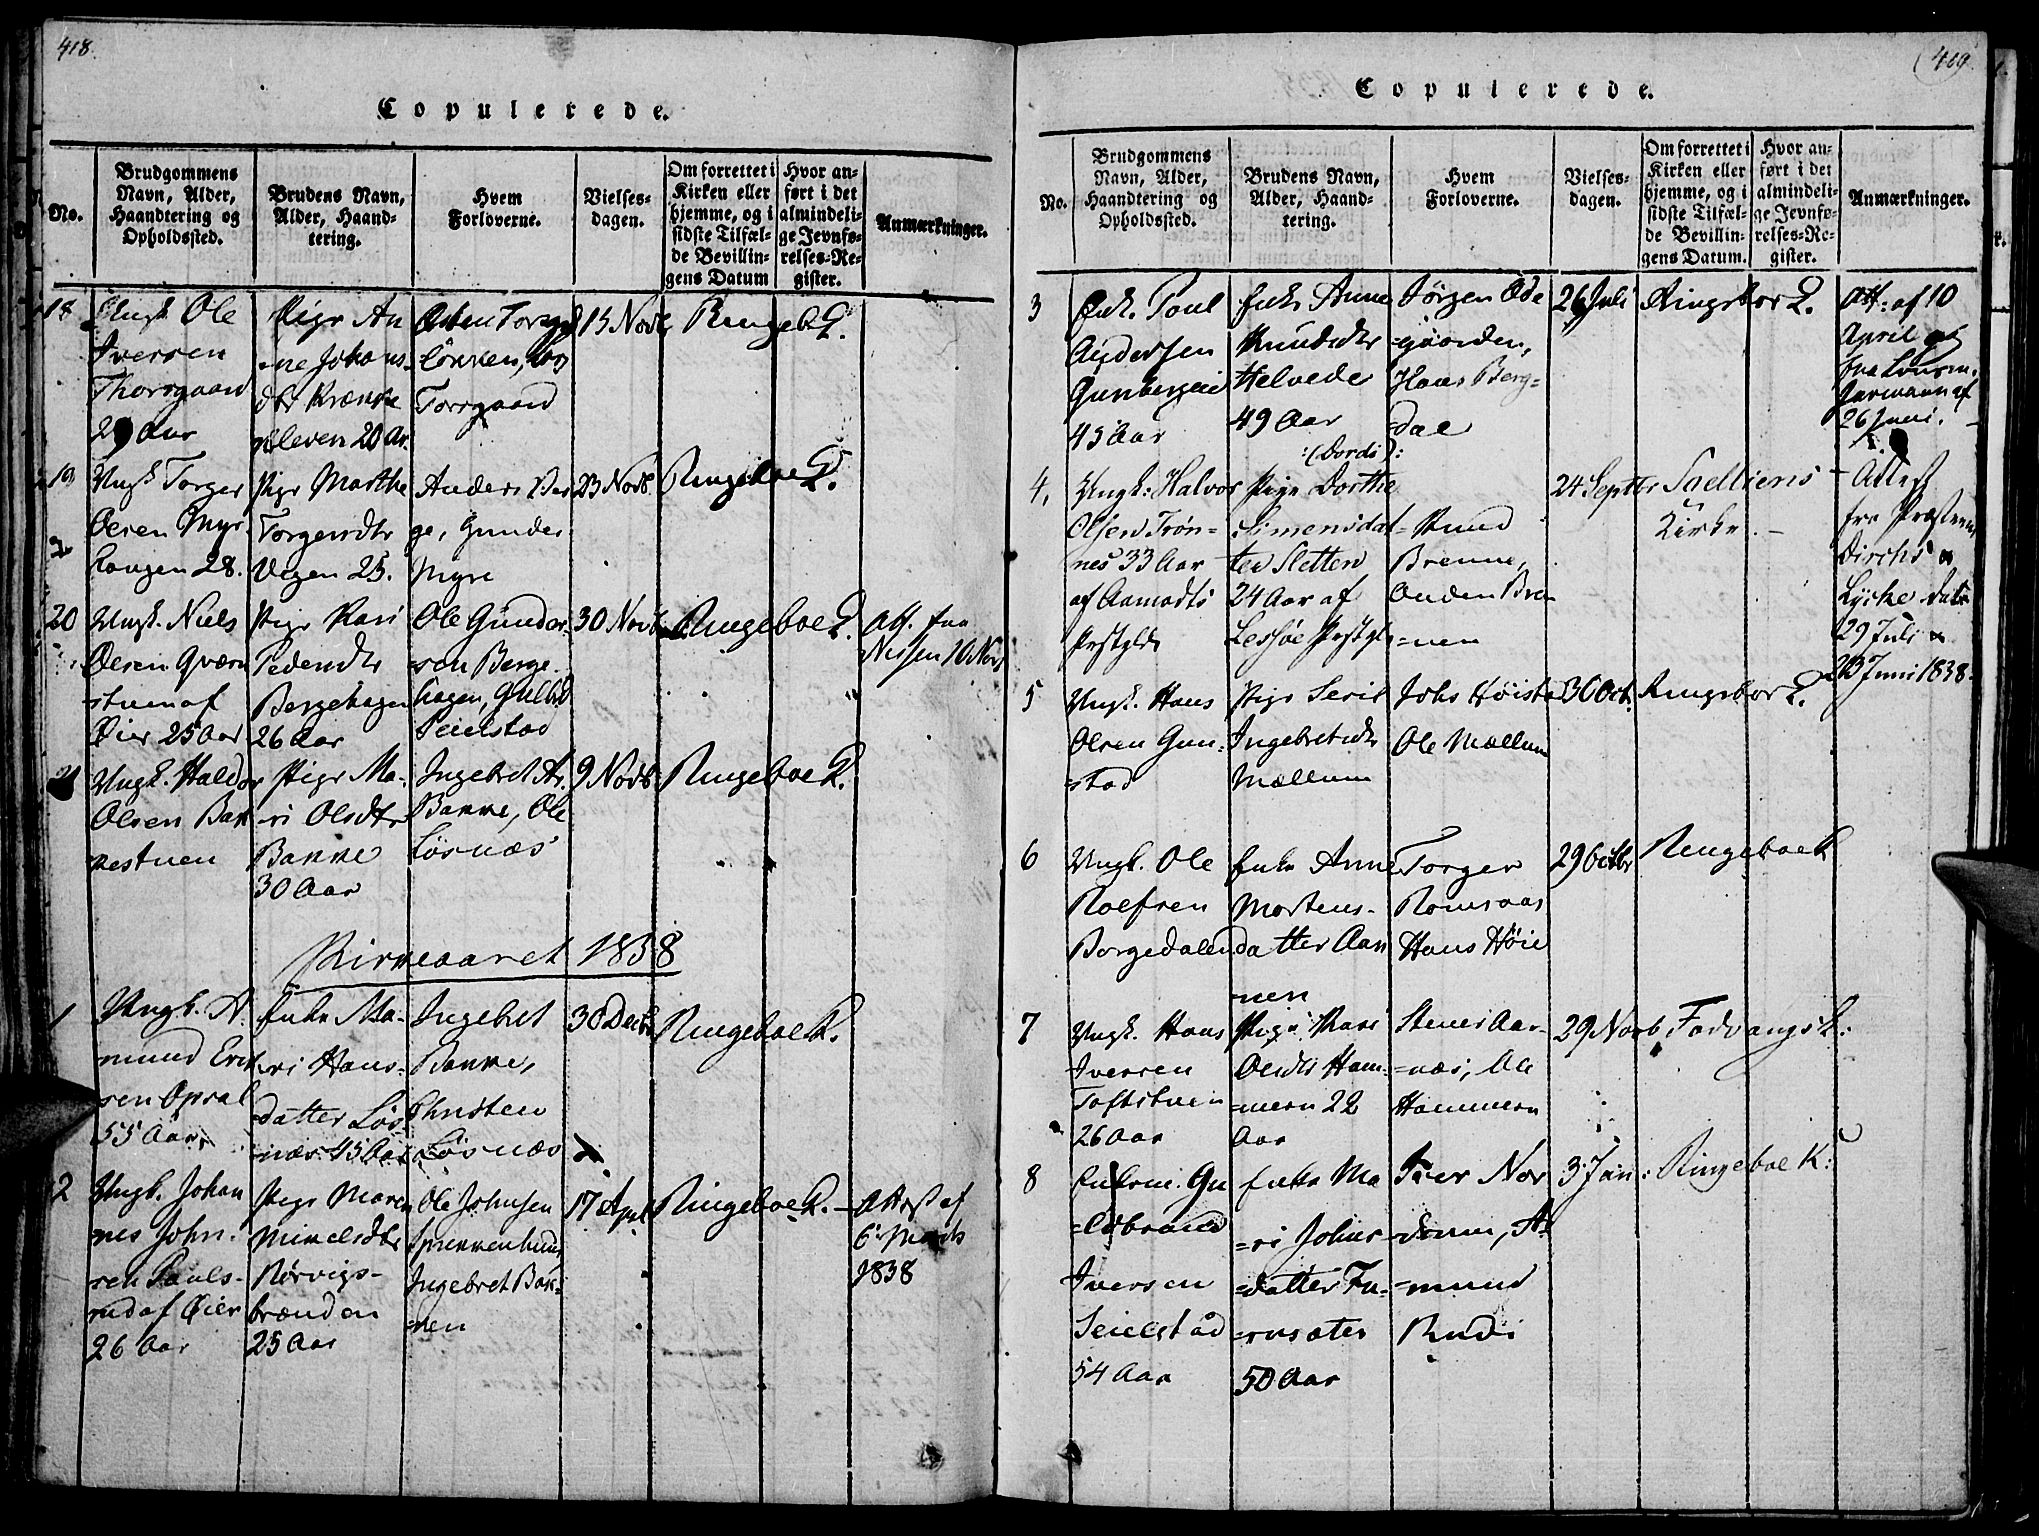 418.
Copulerede.
No.
Brudgommens
Navn, Alder,
Haandtering og
Opholdssted.
Brudens Navn,
Alder, Haand-
tering.
Hvem
Forloverne.
Vielses-
dagen.
Om forrettet i
Kirken eller
hjemme, og i
sidste Tilfæl-
de Bevillin-
gens Datum
Hvor an-
ført i det
almindeli-
ge Jevnfø-
relses-Re-
gister.
Anmærkninger.
18
Ungk Ole
Iversen
Thorsgaard
29 Aar
Pige An
ne Johans-
dtr Krænke
kleven 20 Ar.
Torsgaard
15 Novb
Ringeb K.
19
Ungk Torger
Olsen Myr
haugen 28.
Pige Marthe
Torgersdtr
Vegen 25.
Anders Ber
ge, Gunder
Myre
23 Novb.
Ringeboe K.
20
Ungk. Niels
Olsen Qværn
stuen af
Øier 25 Aar
Pige Kari
Pedersdtr
Bergehagen
26 Aar
Ole Gunder-
son Berge-
hagen, Gulbr
Seielstad
30 Novb
Ringeboe K.
Att. fra
Nissen 16 Nov.
21
Ungk. Haldor
Olsen Bak
kestuen
Pige Ma-
ri Olsdtr
Bakke
30 Aar
Ingebret
Bakke, Ole
Løsnæs
9 Novb.
Ringeboe K.
Kirkeaaret 1838
1
Ungk. A
mund Erik
sen Opsal
55 Aar,
Enke Ma-
ri Hans-
datter Løs-
næs 45 Aar
Ingebret
Bakke,
Christen
Løsnæs
30 Decb
Ringeboe K.
2
Ungk. Johan
nes John-
sen Pauls-
rud af Øier
26 Aar
Pige Maren
Mikelsdtr
Rørvigs-
brænden
25 Aar
Ole Johnsen
Ingebret Bak-
=ken
17 Apr
Ringeboe K. -
Attest af
6 Marts
1838
409
Copulerede.
No.
Brudgommens
Navn, Alder,
Haandtering og
Opholdssted.
Brudens Navn,
Alder, Haand-
tering.
Hvem
Forloverne.
Vielses-
dagen.
Om forrettet i
Kirken eller
hjemme, og i
sidste Tilfæl-
de Bevillin-
gens Datum.
Hvor an-
ført i det
almindeli-
ge Jevnfø-
relses-Re-
gister.
Anmærkninger.
3
Enk. Poul
Andersen
45 Aar
Enke Anne
Knudsdtr
Helvede
49 Aar
Jørgen Øde
=gaarden,
Hans Berg-
=dal
26 Juli
Ringeboe K.
Att: af 10
April og
26 Juni.
4.
Ungk: Halvor
Olsen Trøn-
nes 33 Aar
af Aamodts
Prstgld
:(Dordi):
Pige Dorthe
Simensdat-
ter Sletten
24 Aar af
Lessøe Prstgl
Knud
Brenne,
Anden Bre-
=nen
24 Septbr
Solliens
Kirke. -
- Attest
fra Præsterne
Dircks &
Lycke dat.
29 Juli &
23 Juni 1838.
5
Ungk. Hans
Olsen Gun-
=stad
Pige Seris
Ingebretsdtr
Mællum
Johs Høista
Ole Mællum
30 Oct.
Ringeboe K.
6
Ungk. Ole
Rolfsen
Borgedalen
Enke Anne
Mortens-
datter Aan
nen
Torger
Romsaas
Hans Høie
29 Octbr
Ringeboe K
7
Ungk. Hans
Iversen
Toftstuen
26 Aar
Pige Kari
Olsdtr Ham-
=mern 22
Aar
Stener Aar-
=næs, Ole
Hammern
29 Novb
Fodvangs K:
8
Enkem. Gu
=lbrand
Iversen
Seielstad
54 Aar
Enke Ma
=ri Johns-
=datter Fu-
=rusæter
50 Aar
Iver Nor
=mund
Rudi
3 Jan:
Ringeboe K: